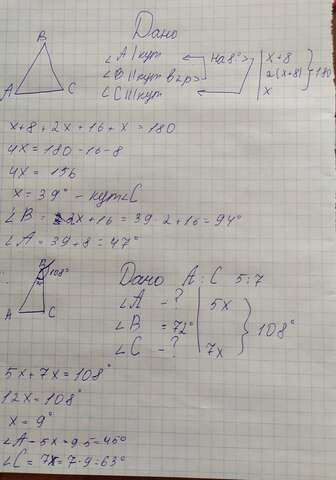 Дано
B
A
C
∠A I кут на 8°> x+8
∠B II кут в 2р> 2(x+8) =180
∠C III кут x
x+8+2x+16+x=180
4x=180-16-8
4x=156
x=39° - кут∠C
∠B= 2x+16=39·2+16=94°
∠A=39+8=47°
B
108°
A
C
Дано A:C 5:7
∠A -? 5x
∠B =72° 108°
∠C -? 7x
5x+7x=108°
12x=108°
x=9°
∠A-5x=9·5=45°
∠C=7x=7·9=63°